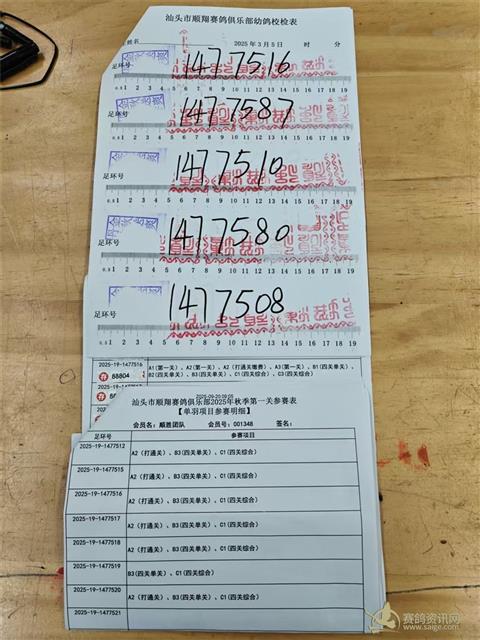 汕头市顺翔赛鸽俱乐部幼鸽校检表
姓名 2025年3月5日 时 分
足环号 1477516
0.5 1 2 3 4 5 6 7 8 9 10 11 12 13 14 15 16 17 18 19
足环号 1477587
0.5 1 2 3 4 5 6 7 8 9 10 11 12 13 14 15 16 17 18 19
足环号 1477510
0.5 1 2 3 4 5 6 7 8 9 10 11 12 13 14 15 16 17 18 19
足环号 1477580
0.5 1 2 3 4 5 6 7 8 9 10 11 12 13 14 15 16 17 18 19
足环号 1477508
0.5 1 2 3 4 5 6 7 8 9 10 11 12 13 14 15 16 17 18 19
2025-19-1477516 A1(第一关)、A2(第一关)、A2(打通关缴费)、A3(第一关)、B1(四关单关)、
存 68804 B2(四关单关)、B3(四关单关)、C1(四关综合)、C3(四关综合)
2025-09-20 09:05
汕头市顺翔赛鸽俱乐部2025年秋季第一关参赛表
【单羽项目参赛明细】
会员名：顺胜团队 会员号：001348 签名：
足环号 参赛项目
2025-19-1477512 A2(打通关)、B3(四关单关)、C1(四关综合)
2025-19-1477515 A2(打通关)、B3(四关单关)、C1(四关综合)
2025-19-1477516 A2(打通关)、B3(四关单关)、C1(四关综合)
2025-19-1477517 A2(打通关)、B3(四关单关)、C1(四关综合)
2025-19-1477518 A2(打通关)、B3(四关单关)、C1(四关综合)
2025-19-1477519 B3(四关单关)、C1(四关综合)
2025-19-1477520 A2(打通关)、B3(四关单关)、C1(四关综合)
2025-19-1477521
赛鸽资讯网
www.saige.com